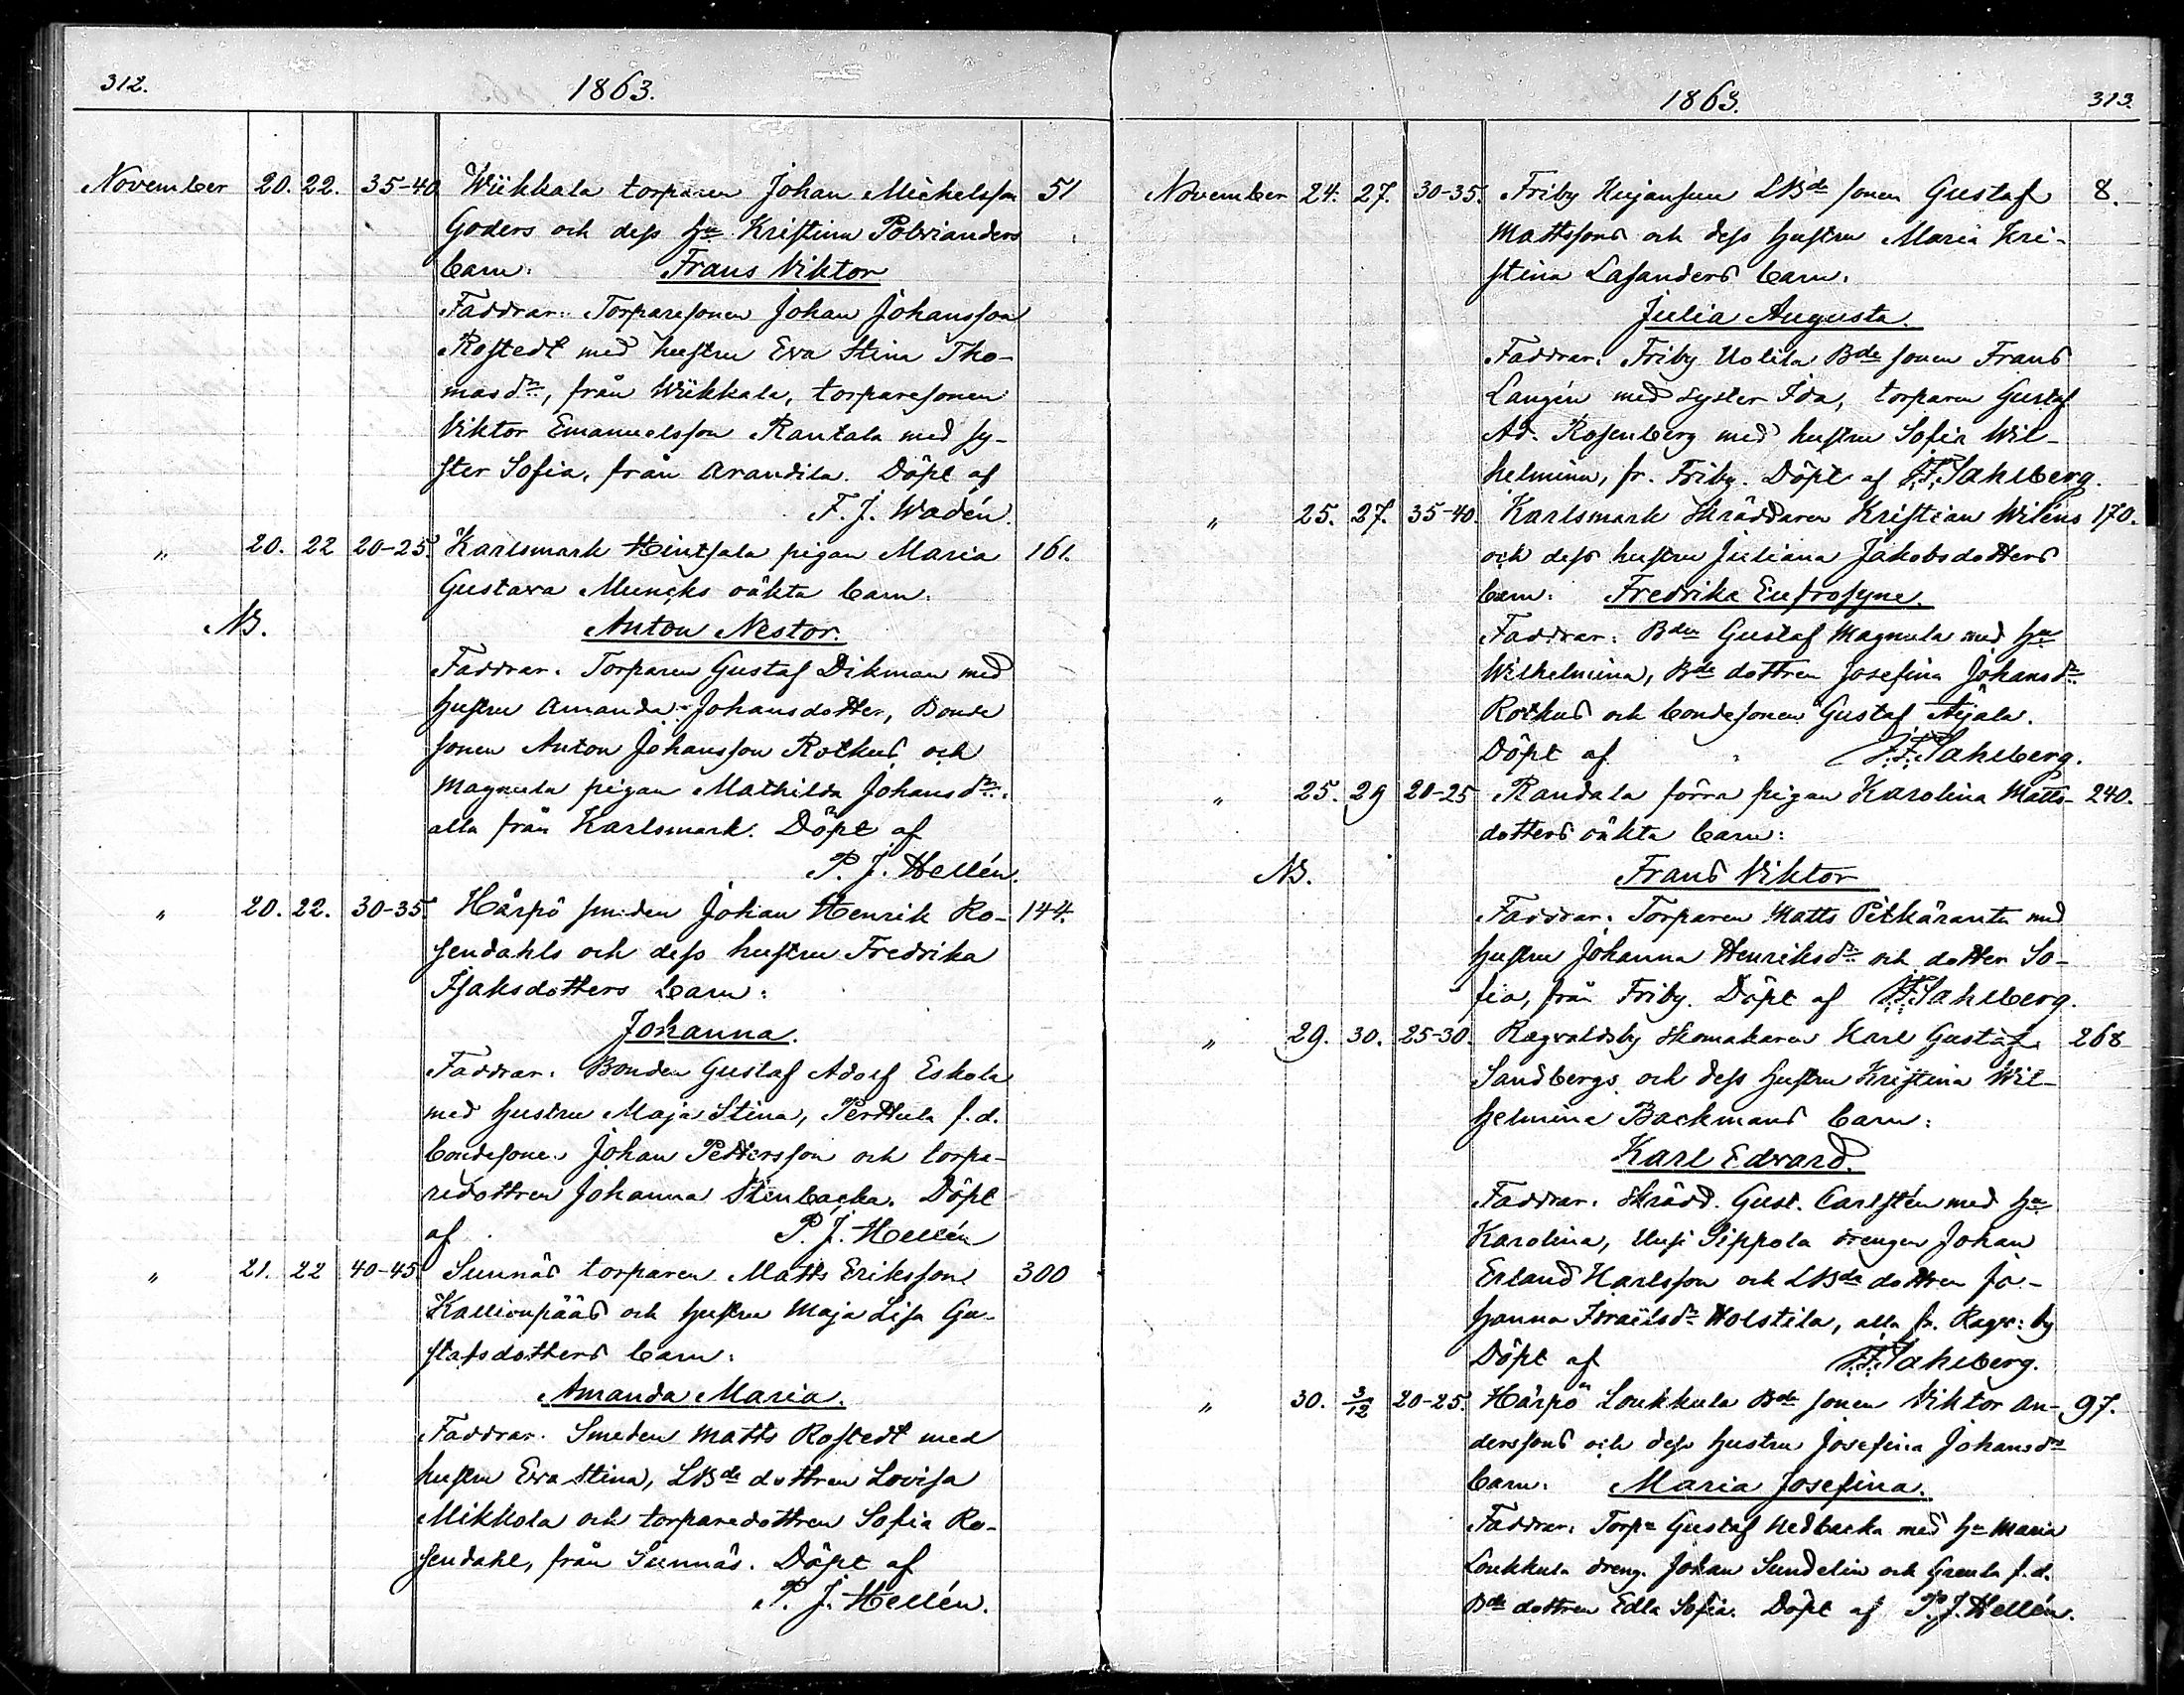 312.
1863.
November 20. 22. 35-40 Wiikkala torparen Johan Michelsson 51
Goders och dess Hu Kristina Polvianders
barn: Frans Viktor
Faddrar: Torparesonen Johan Johansson
Rostedt med hustru Eva Stina Tho-
masdr, från Wiikkala, torparesonen
Viktor Emanuelsson Rantala med sy-
ster Sofia, från Arandila. Döpt af
F. J. Wadén.
" 20. 22 20-25. Karlsmark Heintsala pigan Maria 161.
Gustava Muncks oäkta barn:
NB.
Anton Nestor.
Faddrar: Torparen Gustaf Dikman med
hustru Amanda Johansdotter, Bonde
sonen Anton Johansson Rotkus och
Magnula pigan Mathilda Johansdr.
alla från Karlsmark. Döpt af
P. J. Hellén.
" 20. 22. 30-35. Hårpö smeden Johan Henrik Ro- 144.
sendahls och dess hustru Fredrika
Isaksdotters barn:
Johanna.
Faddrar: Bonden Gustaf Adolf Eskola
med hustru Maja Stina, Perttula f.d.
bondesonen Johan Pettersson och torpa-
redottren Johanna Stenbacka. Döpt
af P. J. Hellén
" 21. 22 40-45. Sunnäs torparen Matts Eriksson 300
Kallionpääs och hustru Maja Lisa Gu-
stafsdotters barn:
Amanda Maria.
Faddrar: Smeden Matts Rostedt med
hustru Eva Stina, LBde dottren Lovisa
Mikkola och torparedottren Sofia Ro-
sendahl, från Sunnäs. Döpt af
P. J. Hellén.
1863.
313.
November 24. 27. 30-35. Friby Kujansuu LBde sonen Gustaf 8.
Mattssons och dess hustru Maria Kri-
stina Lasanders barn:
Julia Augusta.
Faddrar: Friby Uolila Bde sonen Frans
Langén med syster Ida, torparen Gustaf
Ad. Rosenberg med hustru Sofia Wil-
helmina, fr. Friby. Döpt af F.F. Sahlberg.
" 25. 27. 35-40. Karlsmark Skräddaren Kristian Wiléns 170.
och dess hustru Juliana Jakobsdotters
barn: Fredrika Eufrosyne.
Faddrar: Bden Gustaf Magnula med Hu
Wilhelmina, Bde dottren Josefina Johansdr
Rotkus och bondesonen Gustaf Äijälä.
Döpt af F.F. Sahlberg.
" 25. 29 20-25 Randala förra pigan Karolina Matts- 240.
dotters oäkta barn:
NB.
Frans Viktor
Faddrar: Torparen Matts Pitkäranta med
hustru Johanna Henriksdr och dotter So-
fia, från Friby. Döpt af F.F. Sahlberg.
" 29. 30. 25-30. Ragvaldsby Skomakaren Karl Gustaf 268
Sandbergs och dess hustru Kristina Wil-
helmina Backmans barn:
Karl Edvard.
Faddrar: Skrädd. Gust. Carlstén med Hu
Karolina, Uusi Sippola drengen Johan
Erland Karlsson och LBde dottren Jo-
hanna Israëlsdr Holstila, alla fr. Ragv:by
Döpt af F.F. Sahlberg.
" 30. 3/12 20-25. Hårpö Loukkula Bde sonen Viktor An- 97.
derssons och dess hustru Josefina Johansdr
barn: Maria Josefina.
Faddrar: Torpn Gustaf Hedbacka med Hu Maria
Loukkula dreng. Johan Sundelin och Greula f.d.
Bde dottren Edla Sofia. Döpt af P. J. Hellén.